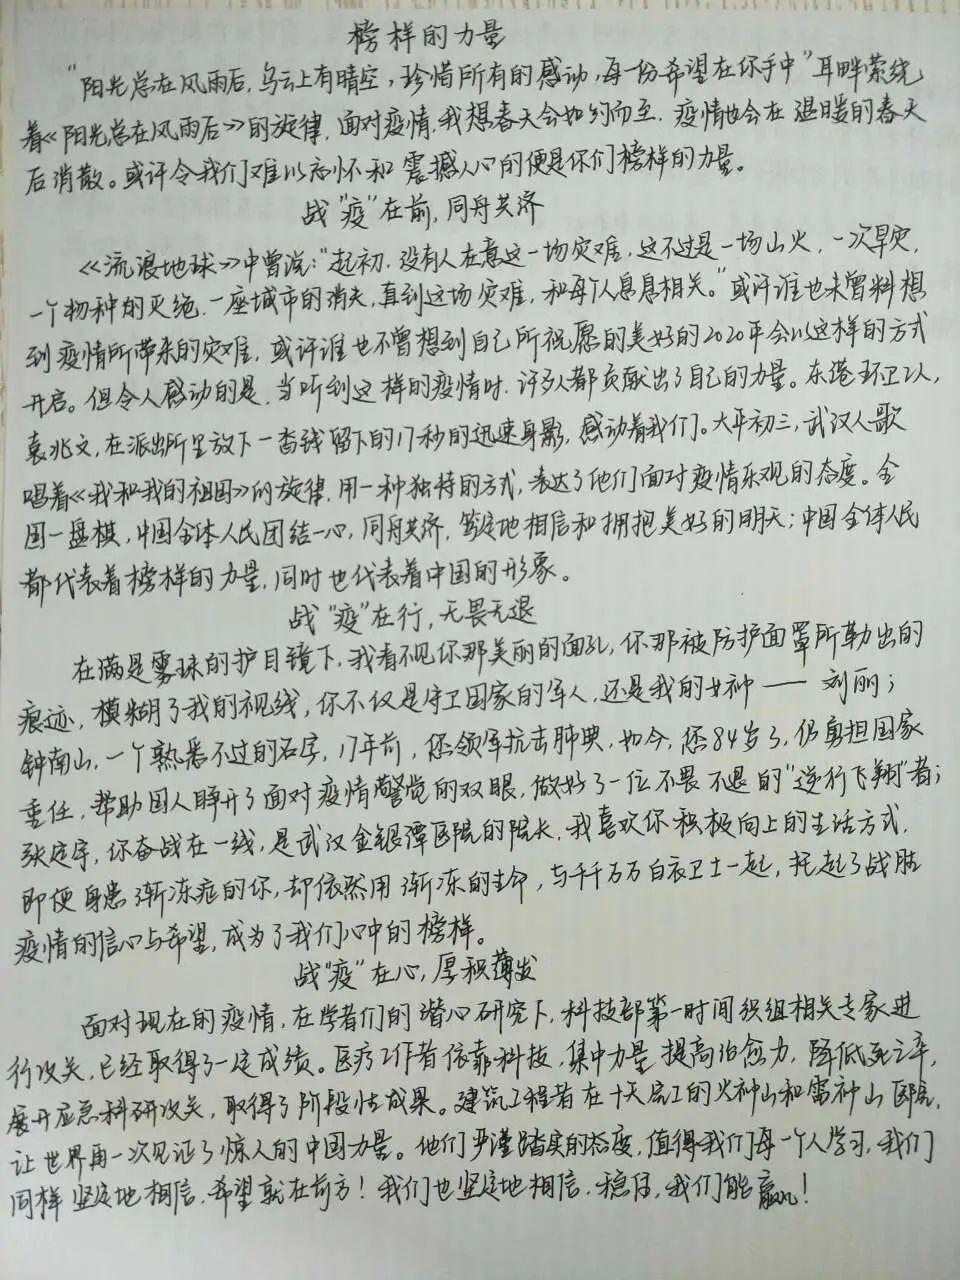 榜样的力量
“阳光总在风雨后,乌云上有晴空,珍惜所有的感动,每一份希望在你手中”耳畔萦绕
着《阳光总在风雨后》的旋律,面对疫情,我想春天会如约而至,疫情也会在温暖的春天
后消散。或许令我们难以忘怀和震撼人心的便是你们榜样的力量。
战“疫”在前,同舟共济
《流浪地球》中曾说:“起初,没有人在意这一场灾难,这不过是一场山火,一次旱灾,
一个物种的灭绝,一座城市的消失,直到这场灾难,和每个人息息相关。”或许谁也未曾料想
到疫情所带来的灾难,或许谁也不曾想到自己所祝愿的美好的2020年会以这样的方式
开启。但令人感动的是,当听到这样的疫情时,许多人都贡献出了自己的力量。东港环卫工人,
袁兆文,在派出所里放下一沓钱留下的17秒的迅速身影,感动着我们。大年初三,武汉人歌
唱着《我和我的祖国》的旋律,用一种独特的方式,表达了他们面对疫情乐观的态度。全
国一盘棋,中国全体人民团结一心,同舟共济,笃定地相信和拥抱美好的明天;中国全体人民
都代表着榜样的力量,同时也代表着中国的形象。
战“疫”在行,无畏无退
在满是雾珠的护目镜下,我看不见你那美丽的面孔,你那被防护面罩所勒出的
痕迹,模糊了我的视线,你不仅是守卫国家的军人,还是我的女神——刘丽;
钟南山,一个熟悉不过的名字,17年前,您领军抗击肺典,如今,您84岁了,仍勇担国家
重任,帮助国人睁开了面对疫情警觉的双眼,做好了一位不畏不退的“逆行飞翔”者;
张定宇,你奋战在一线,是武汉金银潭医院的院长,我喜欢你积极向上的生活方式,
即便身患渐冻症的你,却依然用渐冻的生命,与千千万万白衣卫士一起,托起了战胜
疫情的信心与希望,成为了我们心中的榜样。
战“疫”在心,厚积薄发
面对现在的疫情,在学者们的潜心研究下,科技部第一时间织组相关专家进
行攻关,已经取得了一定成绩。医疗工作者依靠科技,集中力量提高治愈力,降低死亡率,
展开应急科研攻关,取得了阶段性成果。建筑工程者在十天完工的火神山和雷神山医院,
让世界再一次见证了惊人的中国力量。他们严谨踏实的态度,值得我们每一个人学习,我们
同样坚定地相信,希望就在前方!我们也坚定地相信,稳住,我们能赢!